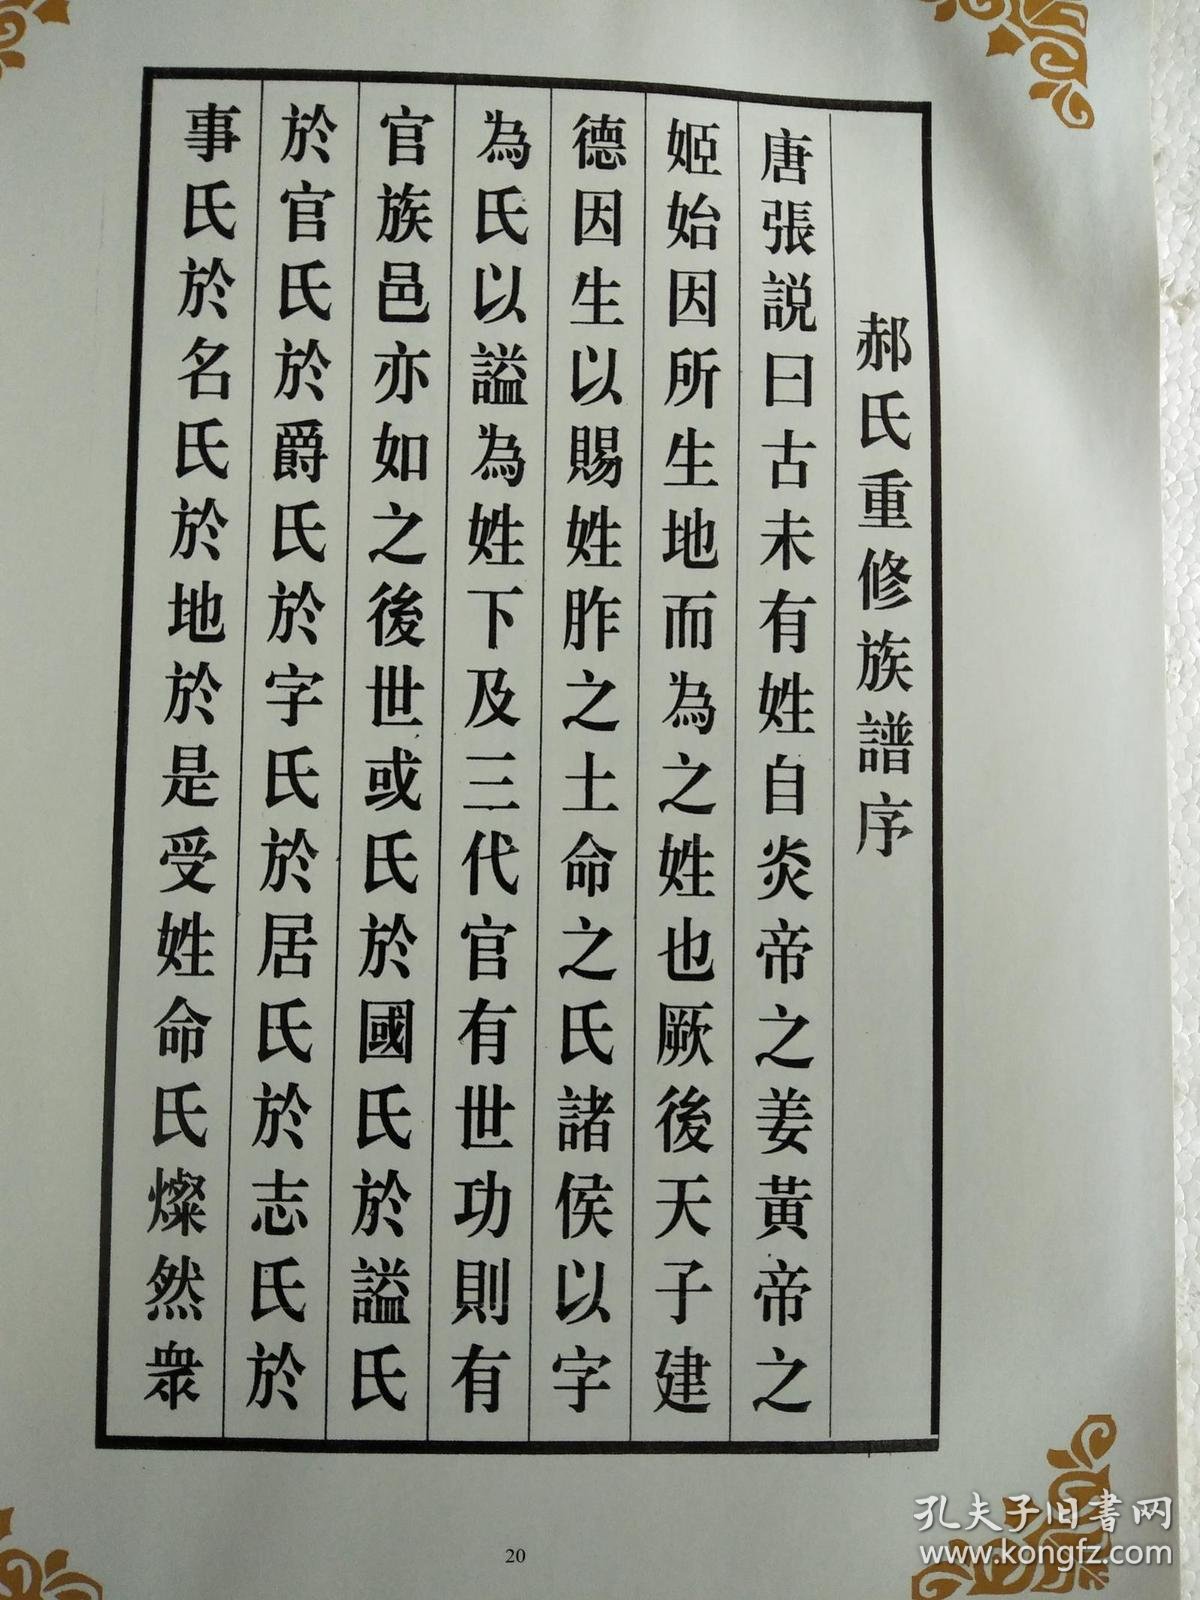 郝氏重修族譜序
唐張説曰古未有姓自炎帝之姜黃帝之
姬始因所生地而為之姓也厥後天子建
德因生以賜姓胙之土命之氏諸侯以字
為氏以謚為姓下及三代官有世功則有
官族邑亦如之後世或氏於國氏於謚氏
於官氏於爵氏於字氏於居氏於志氏於
事氏於名氏於地於是受姓命氏燦然衆
20
孔夫子旧書网
www.kongfz.com